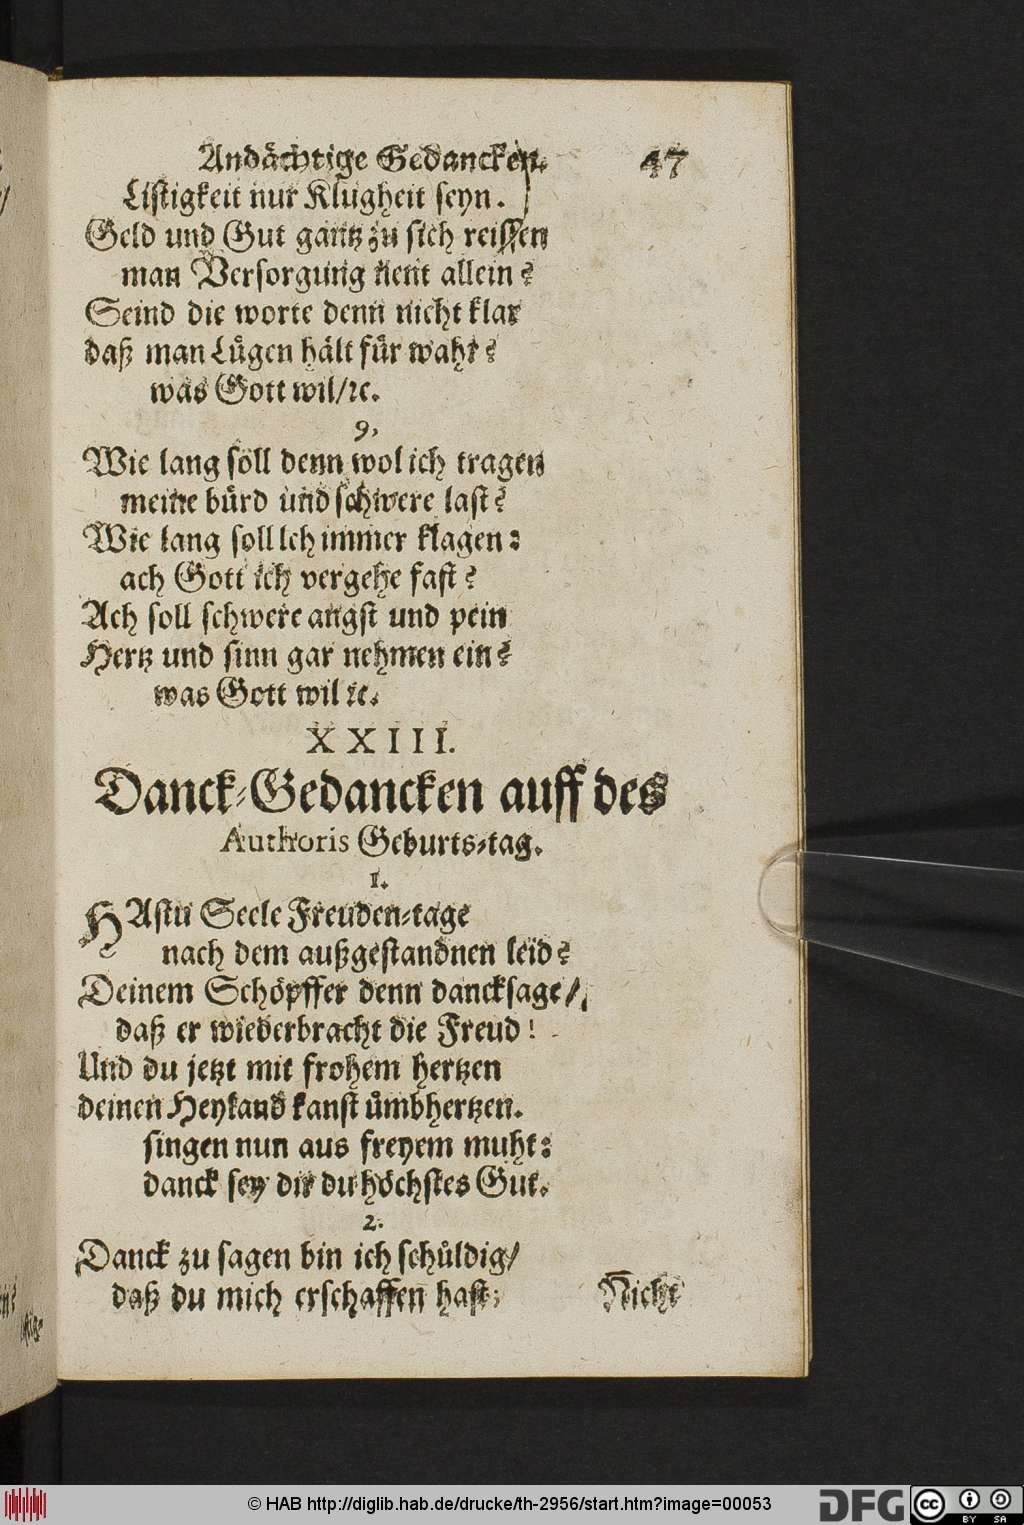 Andächtige Gedancken. 47
Listigkeit nur Klugheit seyn.
Geld und Gut gantz zu sich reissen
man Versorgung nent allein?
Seind die worte denn nicht klar
daß man Lügen hält für wahr?
was Gott wil/ꝛc.
9.
Wie lang soll denn wol ich tragen
meine bürd und schwere last?
Wie lang soll Ich immer klagen:
ach Gott ich vergehe fast?
Ach soll schwere angst und pein
Hertz und sinn gar nehmen ein?
was Gott wil ꝛc.
XXIII.
Danck-Gedancken auff des
Authoris Geburts-tag.
1.
HAstu Seele Freuden-tage
nach dem außgestandnen leid?
Deinem Schöpffer denn dancksage/
daß er wiederbracht die Freud!
Und du jetzt mit frohem hertzen
deinen Heyland kanst ümbhertzen.
singen nun aus freyem muht:
danck sey dir du höchstes Gut.
2.
Danck zu sagen bin ich schüldig/
daß du mich erschaffen hast;
Nicht
© HAB http://diglib.hab.de/drucke/th-2956/start.htm?image=00053
DFG
cc BY SA